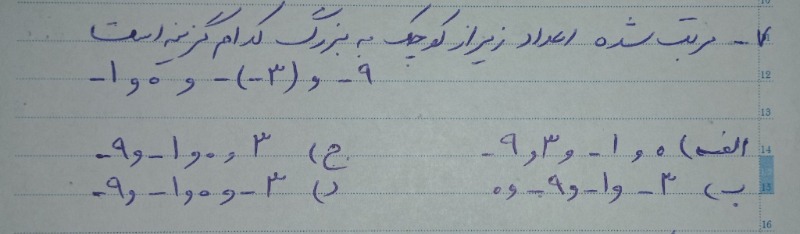 ۷- مرتب شده اعداد زیر از کوچک به بزرگ کدام گزینه است
-۹ و -(-۳) و ۰ و -۱
الف) ۰ و -۱ و ۳ و -۹
ج) ۳ و ۰ و -۱ و -۹
ب) -۳ و -۱ و -۹ و ۰
د) -۳ و ۰ و -۱ و -۹
12
13
14
15
16